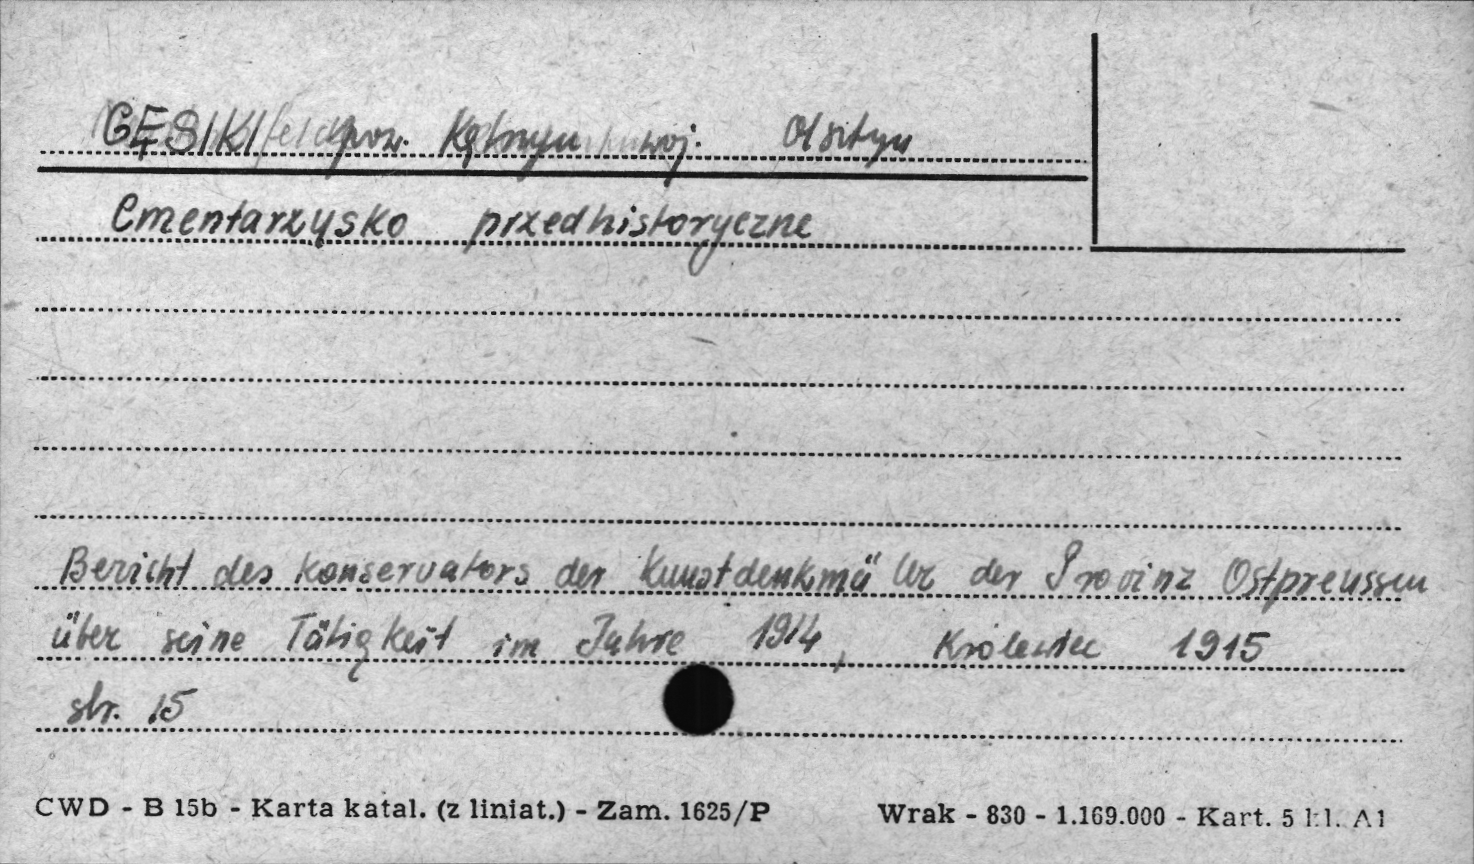 GĘSIKI pow. Kętrzyn woj. Olsztyn
Cmentarzysko przedhistoryczne
Bericht des Konservators der Kunstdenkmäler der Provinz Ostpreussen
über seine Tätigkeit im Jahre 1914, Królewiec 1915
str. 15
CWD - B 15b - Karta katal. (z liniat.) - Zam. 1625/P Wrak - 830 - 1.169.000 - Kart. 5 kl. A1